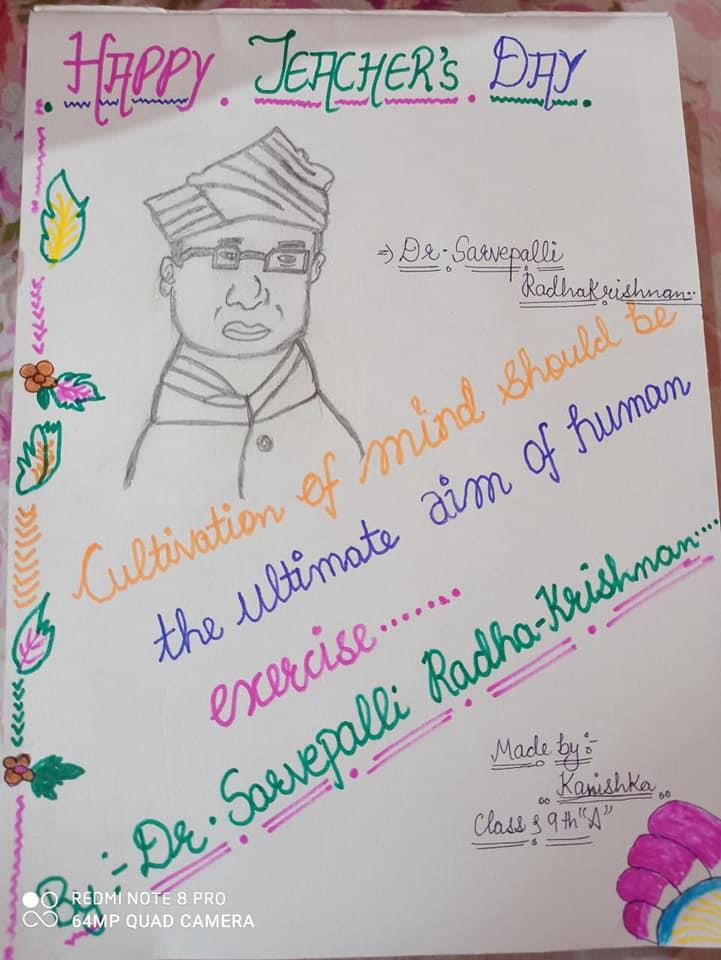 HAPPY TEACHER'S DAY
=> Dr. Sarvepalli
RadhaKrishnan..
Cultivation of mind should be
the ultimate aim of human
exercise.......
By :- Dr. Sarvepalli Radha-Krishnan....
Made by:-
Kanishka
Class : 9th "A"
REDMI NOTE 8 PRO
64MP QUAD CAMERA